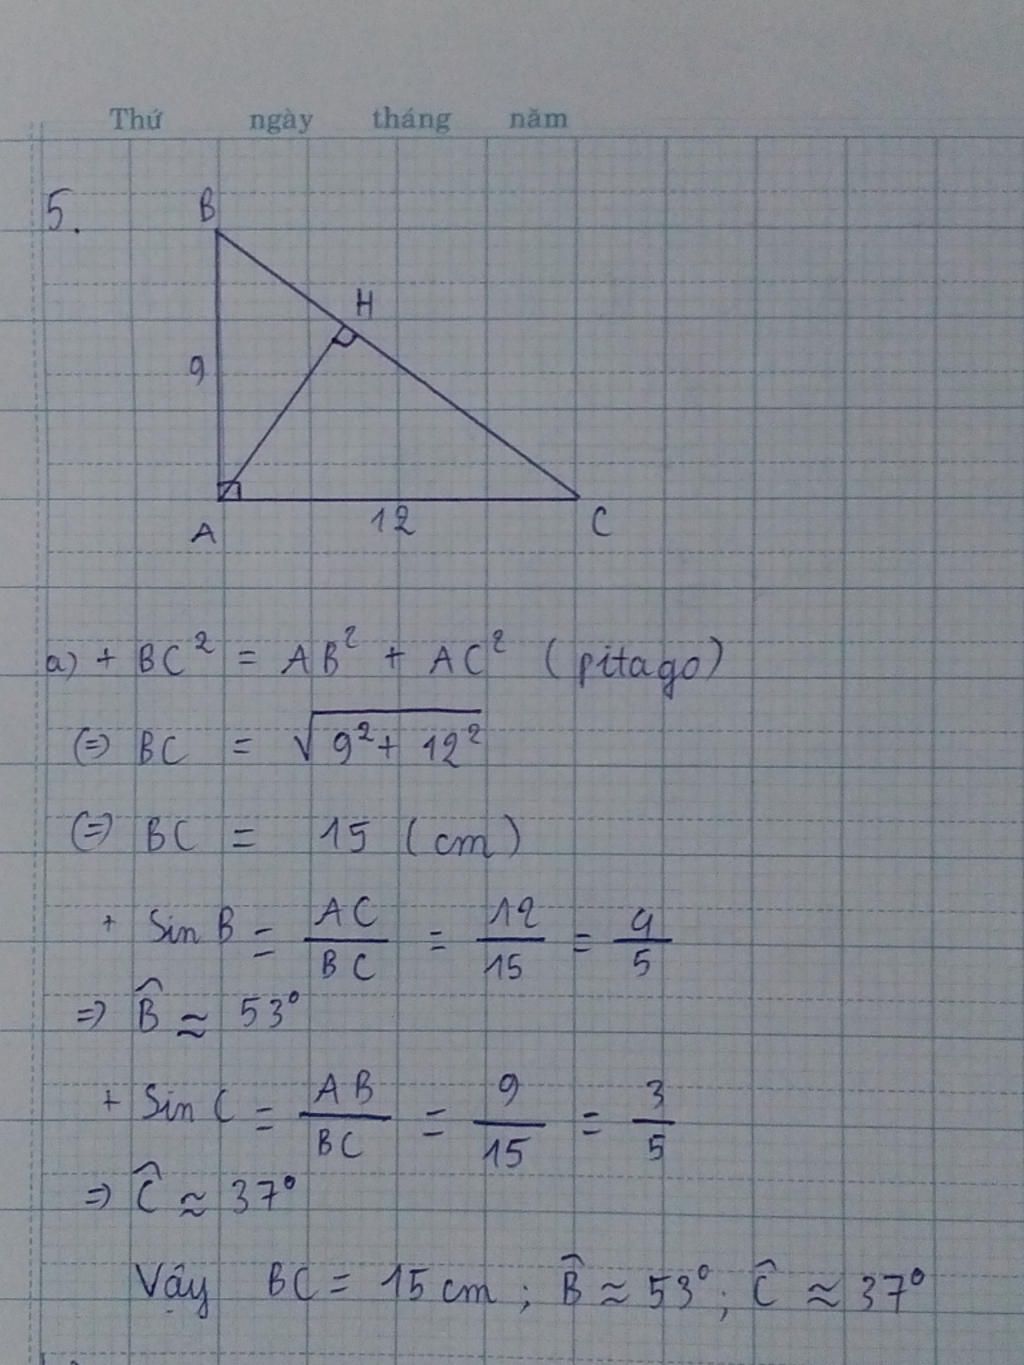 Thứ ngày tháng năm
5.
B
H
9
A
12
C
a) + BC² = AB² + AC² (pitago)
(=) BC = √(9² + 12²)
(=) BC = 15 (cm)
+ Sin B = AC/BC = 12/15 = 4/5
=> B̂ ≈ 53°
+ Sin C = AB/BC = 9/15 = 3/5
=> Ĉ ≈ 37°
Vậy BC = 15 cm ; B̂ ≈ 53° ; Ĉ ≈ 37°